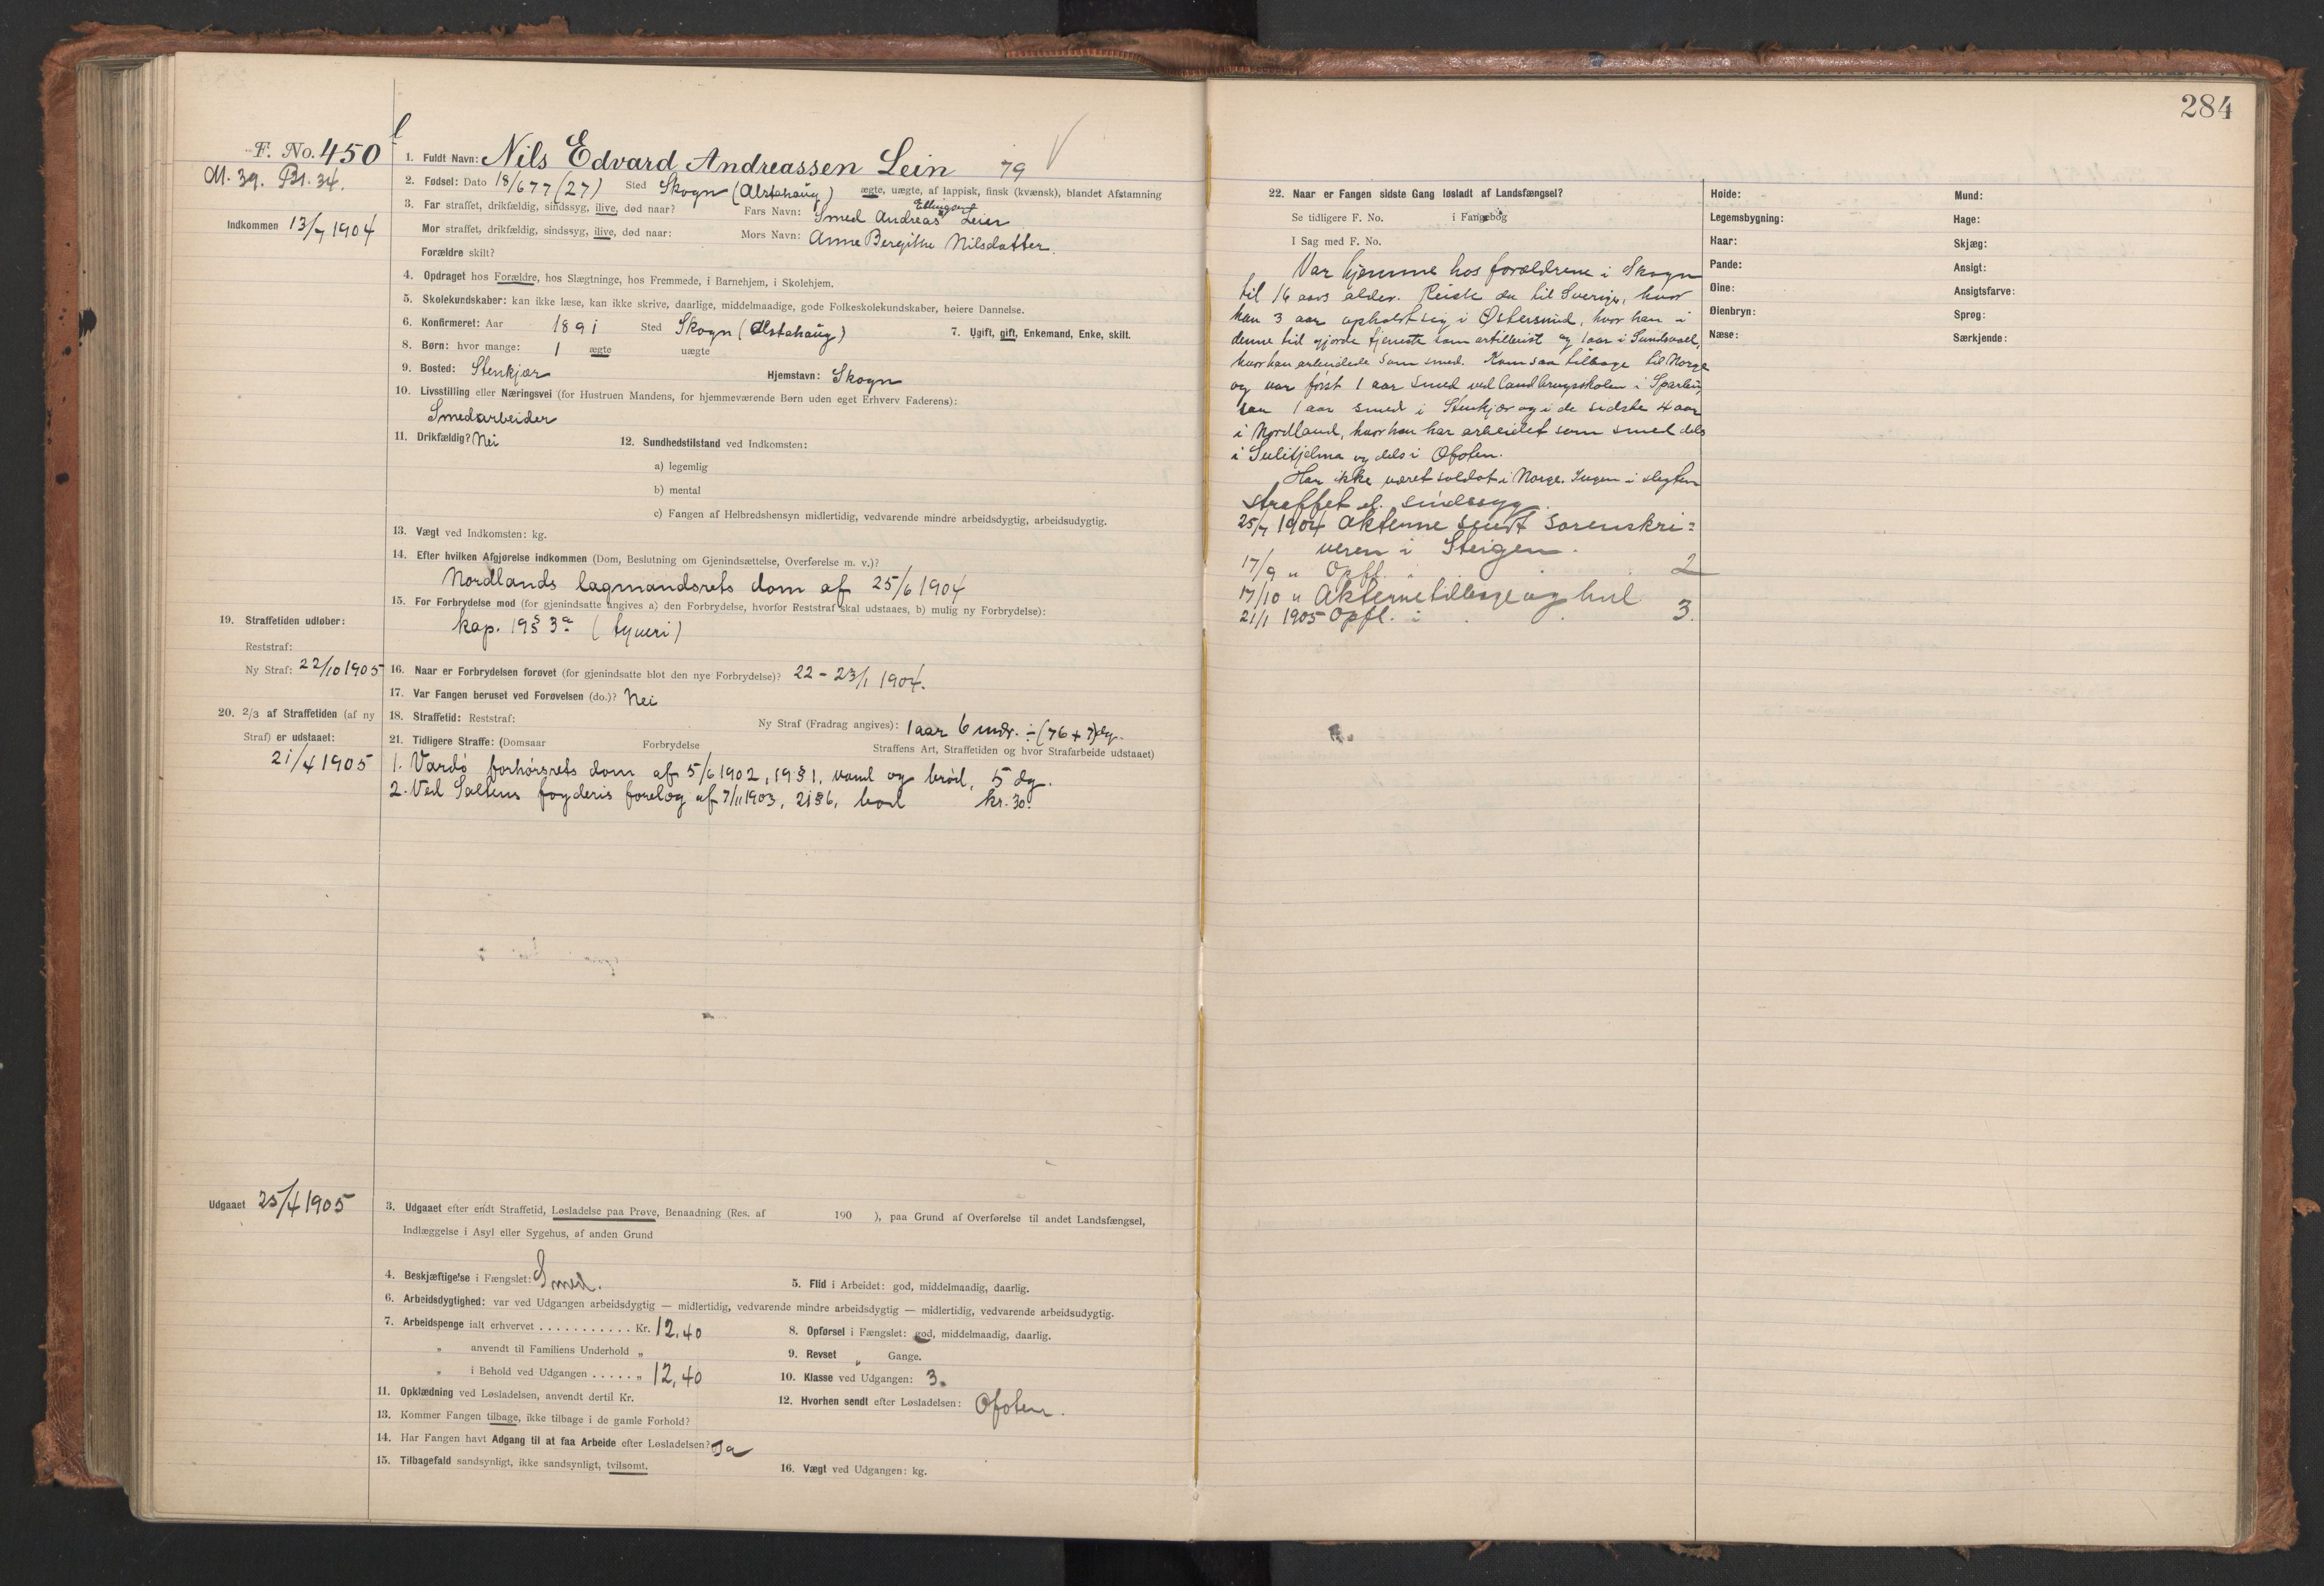 284
F. No. 450
M. 39. Bl. 34.
Indkommen 13/7 1904
1. Fuldt Navn: Nils Edvard Andreassen Lein 79
2. Fødsel: Dato 18/6 77 (27) Sted Skogn (Alstahaug) ægte, uægte, af lappisk, finsk (kvænsk), blandet Afstamning
3. Far straffet, drikfældig, sindssyg, ilive, død naar? Fars Navn: Smed Andreas Ellingsen Lein
Mor straffet, drikfældig, sindssyg, ilive, død naar: Mors Navn: Anne Bergithe Nilsdatter.
Forældre skilt?
4. Opdraget hos Forældre, hos Slægtninge, hos Fremmede, i Barnehjem, i Skolehjem.
5. Skolekundskaber: kan ikke læse, kan ikke skrive, daarlige, middelmaadige, gode Folkeskolekundskaber, høiere Dannelse.
6. Konfirmeret: Aar 1891 Sted Skogn (Alstahaug) 7. Ugift, gift, Enkemand, Enke, skilt.
8. Børn: hvor mange: 1 ægte uægte
9. Bosted: Stenkjær Hjemstavn: Skogn
10. Livsstilling eller Næringsvei (for Hustruen Mandens, for hjemmeværende Børn uden eget Erhverv Faderens):
Smedarbeider
11. Drikfældig? Nei 12. Sundhedstilstand ved Indkomsten:
a) legemlig
b) mental
c) Fangen af Helbredshensyn midlertidig, vedvarende mindre arbeidsdygtig, arbeidsudygtig.
13. Vægt ved Indkomsten: kg.
14. Efter hvilken Afgjørelse indkommen (Dom, Beslutning om Gjenindsættelse, Overførelse m. v.)?
Nordlands lagmandsrets dom af 25/6 1904
15. For Forbrydelse mod (for gjenindsatte angives a) den Forbrydelse, hvorfor Reststraf skal udstaaes, b) mulig ny Forbrydelse):
kap. 19 § 3 a (tyveri)
19. Straffetiden udløber:
Reststraf:
Ny Straf: 22/10 1905
16. Naar er Forbrydelsen forøvet (for gjenindsatte blot den nye Forbrydelse)? 22 - 23/1 1904.
17. Var Fangen beruset ved Forøvelsen (do.)? Nei
20. 2/3 af Straffetiden (af ny
Straf) er udstaaet:
21/4 1905
18. Straffetid: Reststraf: Ny Straf (Fradrag angives): 1 aar 6 mdr. ÷ (76 + 7) dg.
21. Tidligere Straffe: (Domsaar Forbrydelse Straffens Art, Straffetiden og hvor Strafarbeide udstaaet)
1. Vardø forhørsrets dom af 5/6 1902, 19 § 1, vand og brød, 5 dg.
2. Ved Saltens fogderis forelæg af 7/11 1903, 21 § 6, bod kr. 30.
Udgaaet 25/4 1905
3. Udgaaet efter endt Straffetid, Løsladelse paa Prøve, Benaadning (Res. af 190 ), paa Grund af Overførelse til andet Landsfængsel,
Indlæggelse i Asyl eller Sygehus, af anden Grund
4. Beskjæftigelse i Fængslet: Smed. 5. Flid i Arbeidet: god, middelmaadig, daarlig.
6. Arbeidsdygtighed: var ved Udgangen arbeidsdygtig — midlertidig, vedvarende mindre arbeidsdygtig — midlertidig, vedvarende arbeidsudygtig.
7. Arbeidspenge ialt erhvervet . . . . . . . . . . . Kr. 12,40 8. Opførsel i Fængslet: god, middelmaadig, daarlig.
„ anvendt til Familiens Underhold „ 9. Revset „ Gange.
„ i Behold ved Udgangen . . . . . „ 12,40 10. Klasse ved Udgangen: 3.
11. Opklædning ved Løsladelsen, anvendt dertil Kr. 12. Hvorhen sendt efter Løsladelsen: Ofoten.
13. Kommer Fangen tilbage, ikke tilbage i de gamle Forhold?
14. Har Fangen havt Adgang til at faa Arbeide efter Løsladelsen? Ja
15. Tilbagefald sandsynligt, ikke sandsynligt, tvilsomt. 16. Vægt ved Udgangen: kg.
22. Naar er Fangen sidste Gang løsladt af Landsfængsel?
Se tidligere F. No. i Fangebog
I Sag med F. No.
Var hjemme hos forældrene i Skogn
til 16 aars alder. Reiste da til Sverige, hvor
han 3 aar opholdt sig i Østersund, hvor han i
denne tid gjorde tjeneste som artillerist og 1 aar i Sundsvall,
hvor han arbeidede som smed. Kom saa tilbage til Norge
og var først 1 aar smed ved landbrugsskolen i Sparbu,
saa 1 aar smed i Stenkjær og i de sidste 4 aar
i Nordland, hvor han har arbeidet som smed dels
i Sulitjelma og dels i Ofoten.
Har ikke været soldat i Norge. Ingen i slegten
straffet el. sindssyg.
25/7 1904 Akterne sendt sorenskri=
veren i Steigen.
17/9 „ Opfl. 2
17/10 „ Akterne tilbage og hul
21/1 1905 Opfl. i 3.
Høide:
Legemsbygning:
Haar:
Pande:
Øine:
Øienbryn:
Næse:
Mund:
Hage:
Skjæg:
Ansigt:
Ansigtsfarve:
Sprog:
Særkjende: